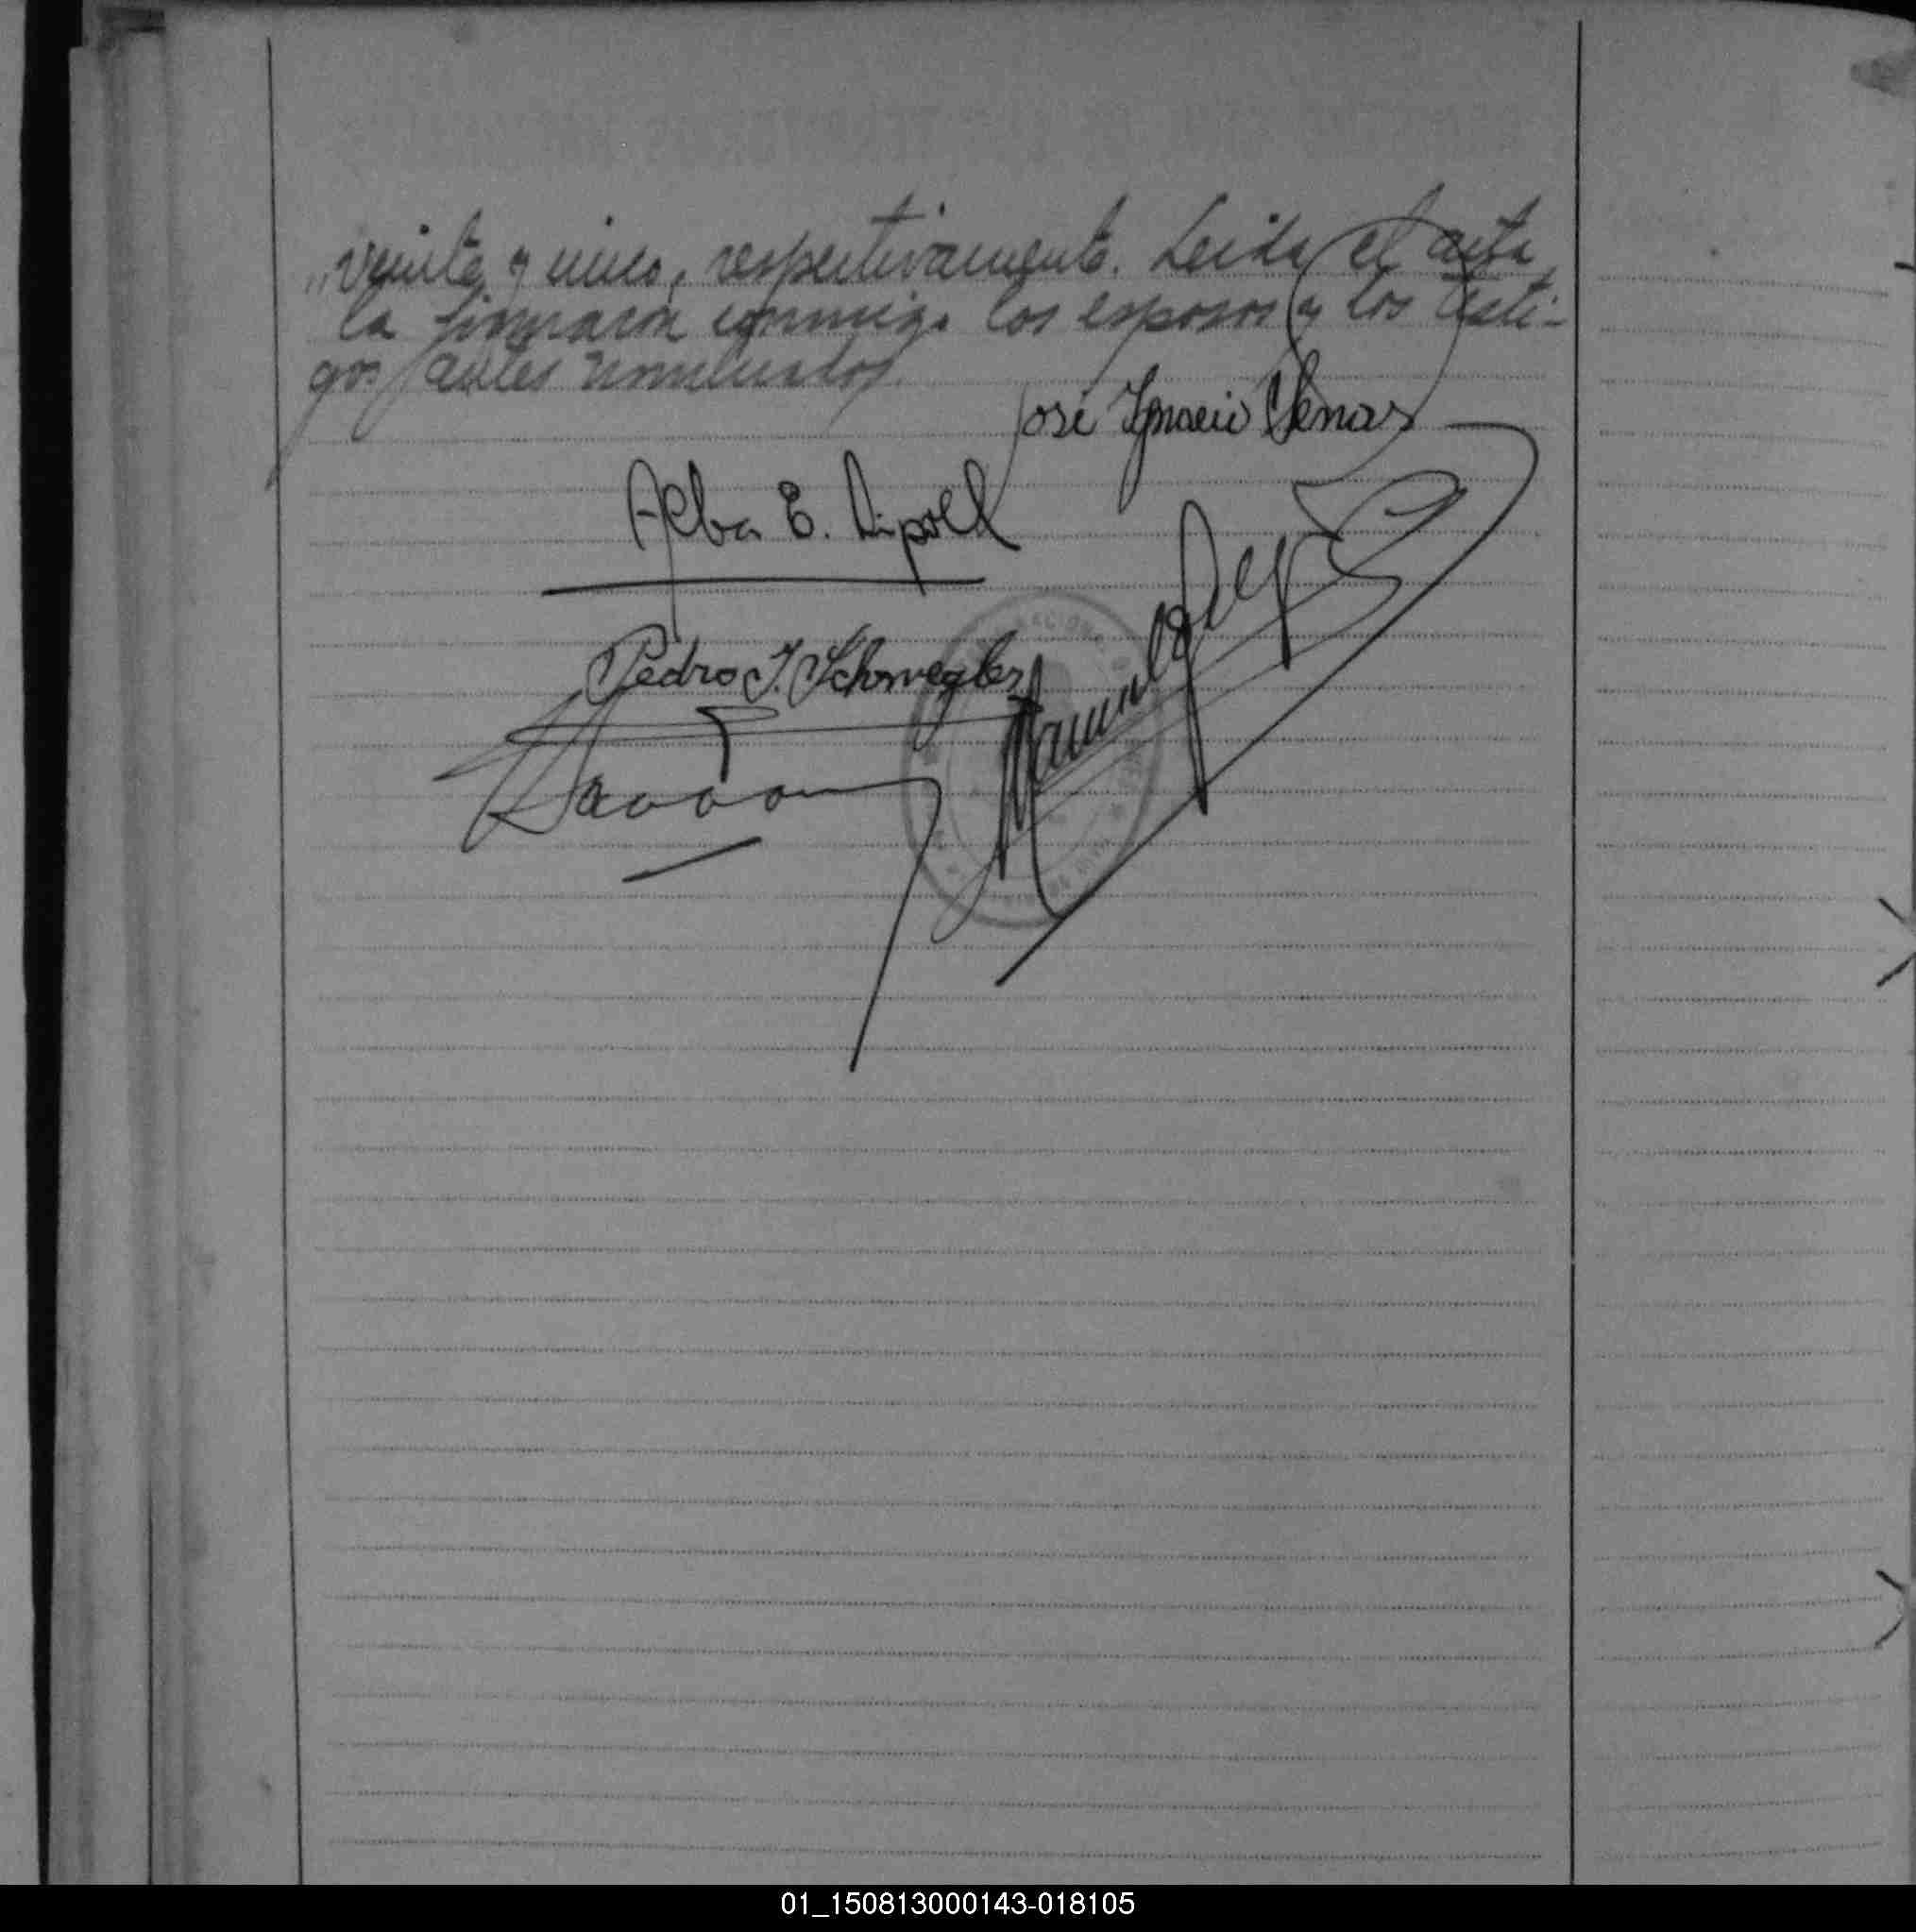 veinte y cinco, respectivamente. Leida el acta
la firmaron conmigo los esposos y los testi-
gos antes nombrados.
José Ignacio
Alba E. Ripoll
Pedro J. Schwegler
01_150813000143-018105